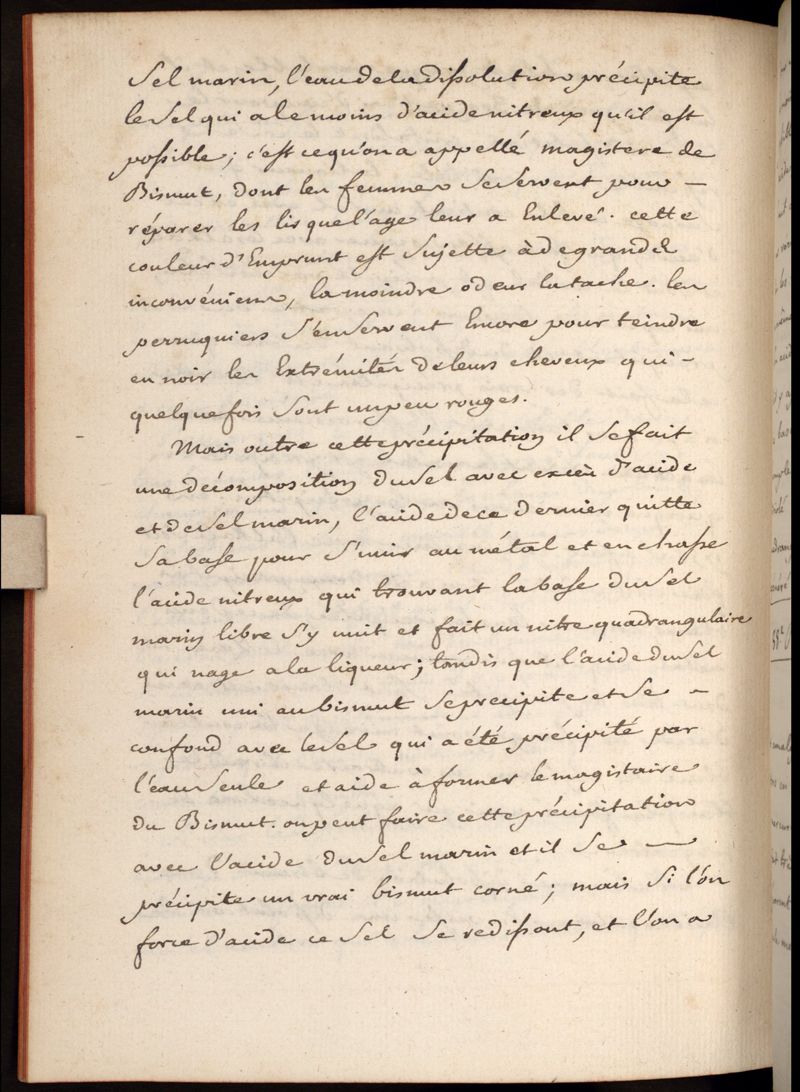 Sel marin, l'eau de la dissolution précipite
le Sel qui a le moins d'acide nitreux qu'il est
possible; c'est ce qu'on a appellé magistere de
Bismut, dont les femmes Se Servent pour —
réparer les lis que l'age leur a Enlevé. cette
couleur d'Emprunt est Sujette à de grands
inconvéniens, la moindre odeur la tache. les
perruquiers S'en Servent Encore pour teindre
en noir les Extrémités de leurs cheveux qui –
quelque fois Sont un peu rouges.
Mais outre cette précipitation il Se fait
une décomposition du Sel avec excès d'acide
et de Sel marin, l'acide de ce dernier quitte
Sa base pour S'unir au métal et en chasse
l'acide nitreux qui trouvant la base du Sel
marin libre S'y unit et fait un nitre quadrangulaire
qui nage a la liqueur; tandis que l'acide du Sel
marin uni au bismut Se precipite et Se –
confond avec le Sel qui a été précipité par
l'eau Seule et aide à former le magistaire
du Bismut. on peut faire cette précipitation
avec l'acide du Sel marin et il Se —
précipite un vrai bismut corné; mais Si l'on
force d'acide ce Sel Se redissout, et l'on a